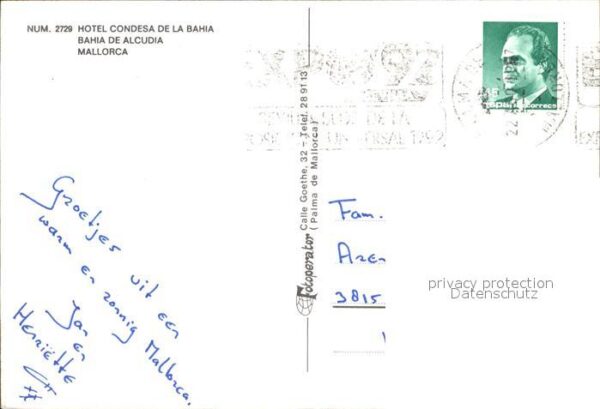 NUM. 2729 HOTEL CONDESA DE LA BAHIA
BAHIA DE ALCUDIA
MALLORCA
EXPO 92
UNIVERSAL 1992
España correos
Fotoperator Calle Goethe, 32 - Telef. 28 91 13
(Palma de Mallorca)
Groetjes uit een
warm en zonnig Mallorca.
Jan en
Henriëtte
xx
Fam.
3815
privacy protection
Datenschutz